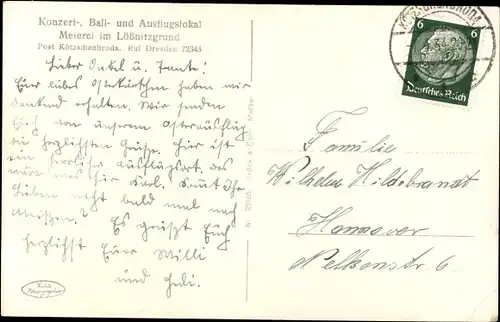 Konzert-, Ball- und Ausflugslokal
Meierei im Lößnitzgrund
Post Kötzschenbroda. Ruf Dresden 72343
Lieber Onkel u. Tante!
Euer liebes Osterkästchen haben wir
dankend erhalten. Wir senden
Euch von unserem Osterausflug
die herzlichsten Grüße. Hier ist
ein herrlicher Ausflugsort. Das
wäre was für Karl. Könnt Ihr
Lieben nicht bald mal nach
Meißen? Es grüßt Euch
herzlichst Euer Willi
und Hedi.
KÖTZSCHENBRODA
6 6
Deutsches Reich
Familie
Wilhelm Hildebrandt
Hannover
Nelkenstr 6.